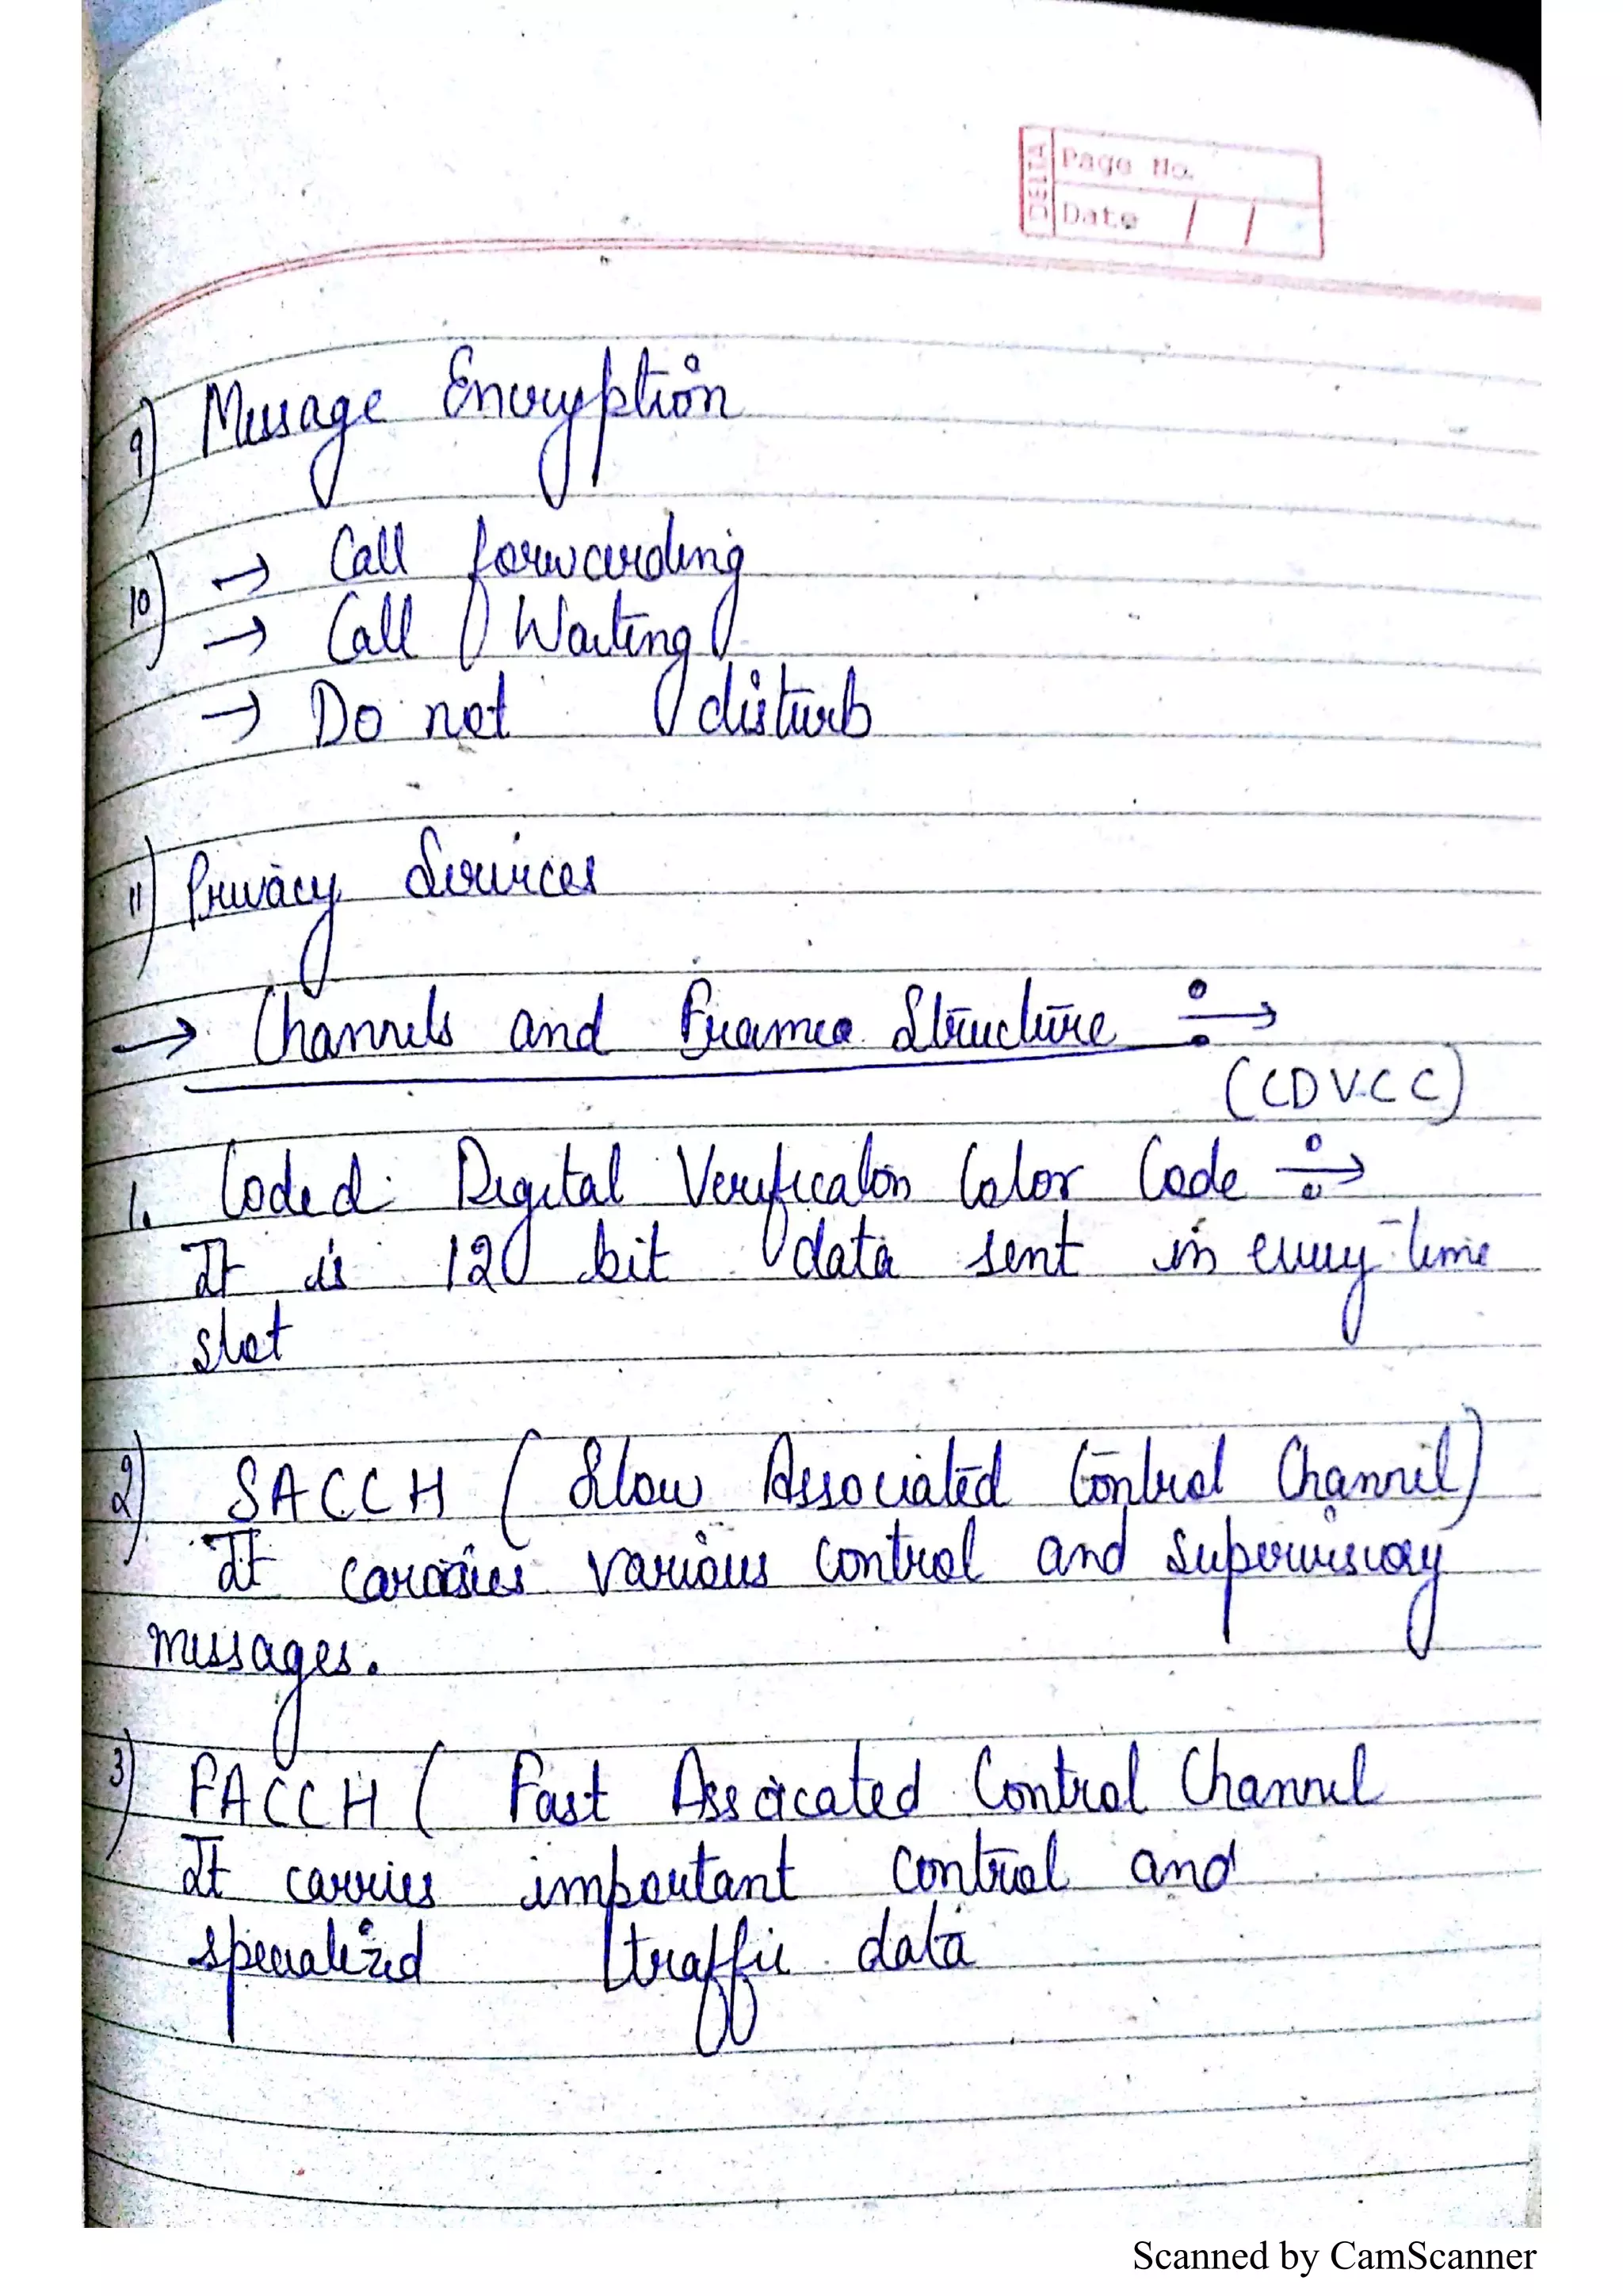 DELTA
Page No.
Date / /
9) Message Encryption
10) → Call forwarding
→ Call Waiting
→ Do not disturb
11) Privacy Services
→ Channels and Frame Structure ÷→
(CDVCC)
1. Coded Digital Verification Color Code ÷→
It is 12 bit data sent in every time
slot
2) SACCH ( Slow Associated Control Channel)
It carries various control and supervisory
messages.
3) FACCH ( Fast Assoicated Control Channel
It carries important control and
specialized traffic data
Scanned by CamScanner